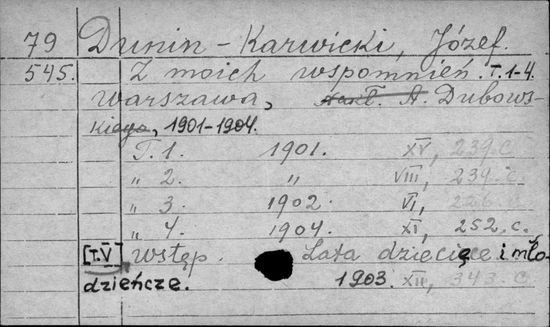 79 Dunin-Karwicki, Józef.
545. Z moich wspomnień. T. 1-4.
Warszawa, nakł. A. Dubows-
kiego, 1901-1904.
T. 1. 1901. XV, 239 c.
„ 2. „ VIII, 239. c.
„ 3 1902 VI, 226 c.
„ 4. 1904. XI, 252. c.
[T.V] Wstęp. Lata dziecięce i mło-
dzieńcze. 1903. XII, 343 c.